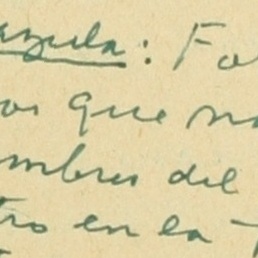 azula: Fo
os que no
mbres del
tro en la